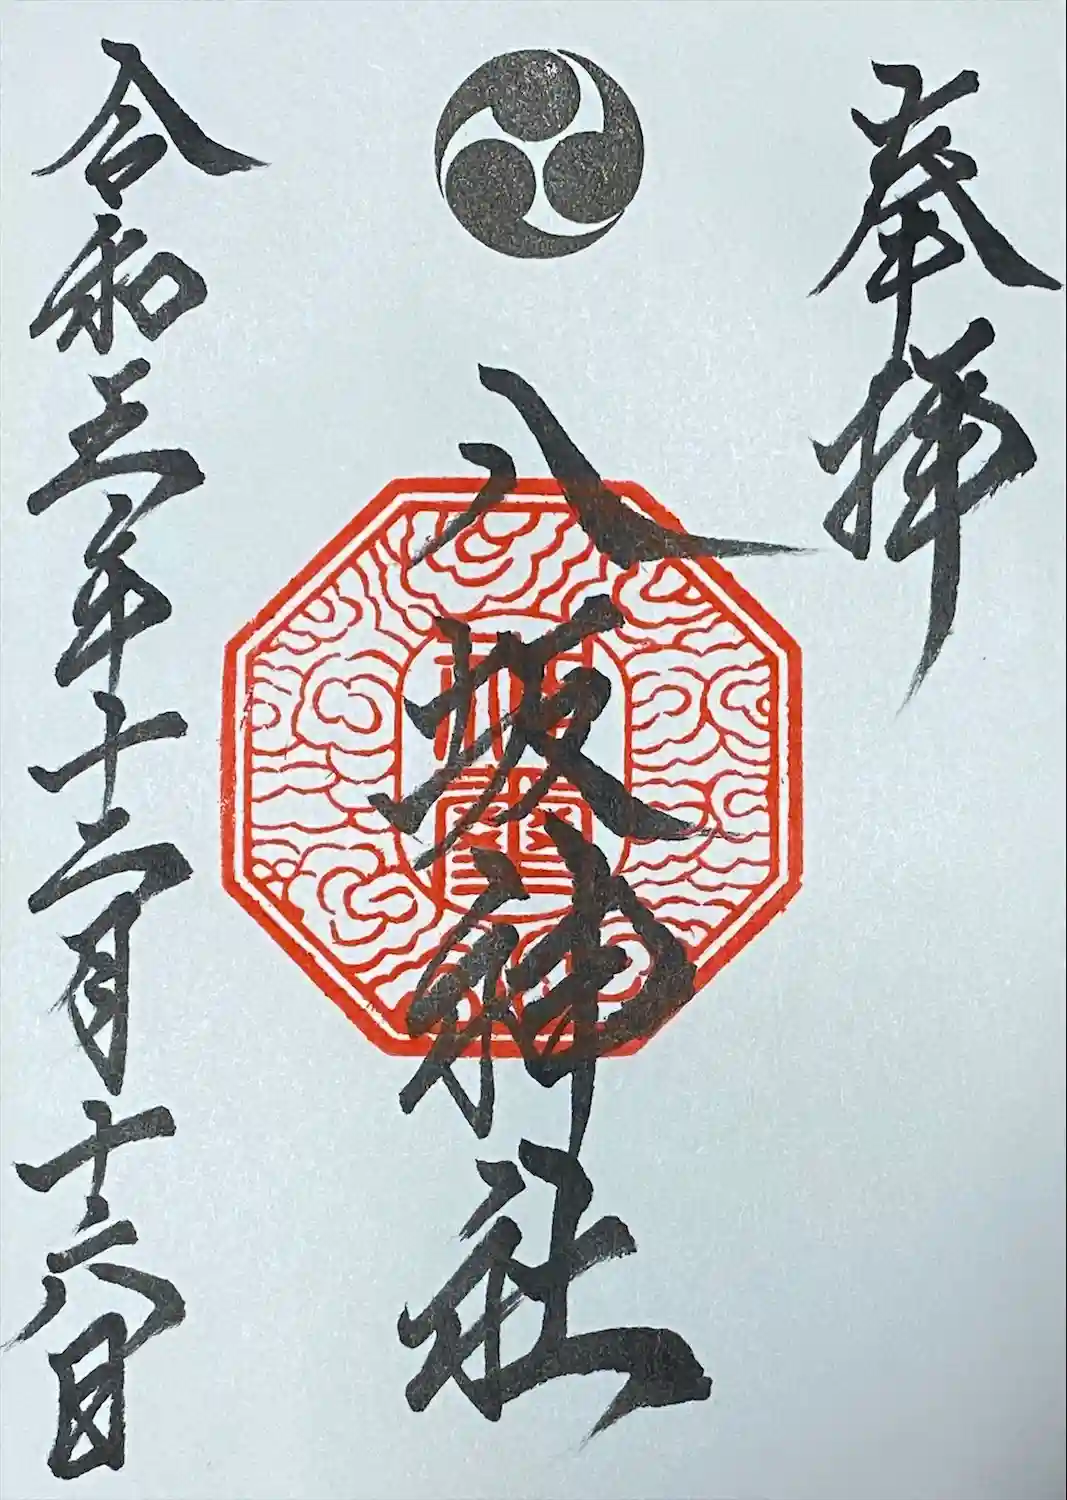 奉拝
八坂神社
令和三年十二月十六日